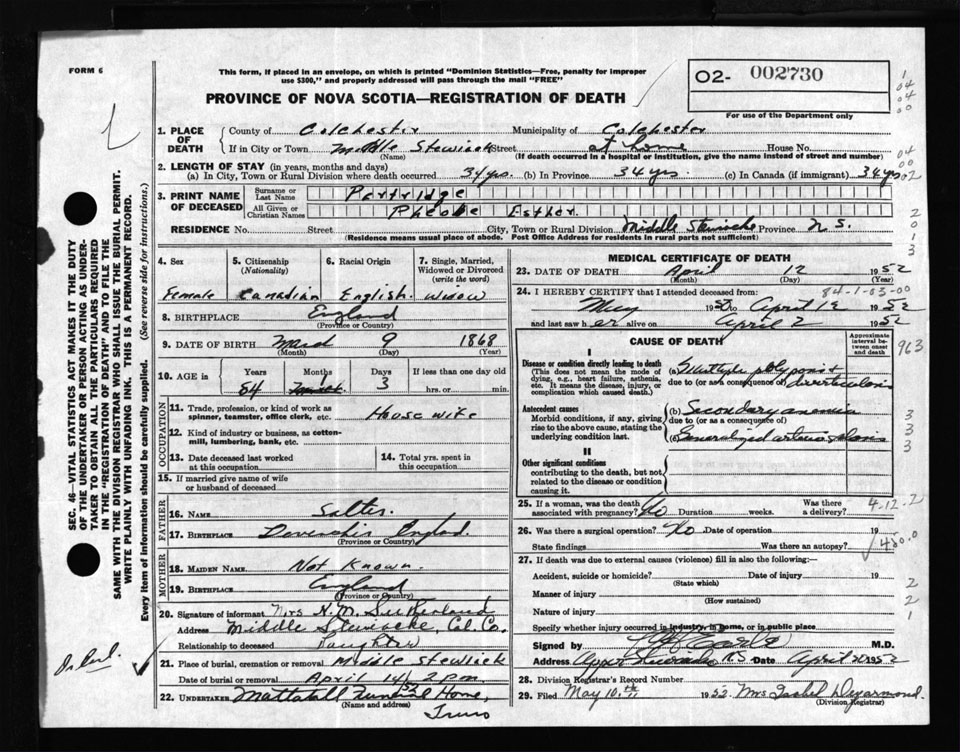 FORM 6
This form, if placed in an envelope, on which is printed "Dominion Statistics—Free, penalty for improper use $300," and properly addressed will pass through the mail "FREE"
O2- 002730
For use of the Department only
PROVINCE OF NOVA SCOTIA—REGISTRATION OF DEATH
1. PLACE OF DEATH
County of Colchester Municipality of Colchester
If in City or Town Middle Stewiack Street at home House No.
(Name) (If death occurred in a hospital or institution, give the name instead of street and number)
2. LENGTH OF STAY (in years, months and days)
(a) In City, Town or Rural Division where death occurred 34 yrs. (b) In Province 34 yrs. (c) In Canada (if immigrant) 34 yrs
3. PRINT NAME OF DECEASED
Surname or Last Name Partridge
All Given or Christian Names Pheobe Esther.
RESIDENCE No. Street City, Town or Rural Division Middle Stewiacke Province N S.
(Residence means usual place of abode. Post Office Address for residents in rural parts not sufficient)
4. Sex
Female
5. Citizenship (Nationality)
Canadian
6. Racial Origin
English.
7. Single, Married, Widowed or Divorced (write the word)
Widow
8. BIRTHPLACE England
(Province or Country)
9. DATE OF BIRTH March 9 1868
(Month) (Day) (Year)
10. AGE in
Years 84
Months
Days 3
If less than one day old
hrs. or min.
OCCUPATION
11. Trade, profession, or kind of work as spinner, teamster, office clerk, etc. House wife
12. Kind of industry or business, as cotton-mill, lumbering, bank, etc.
13. Date deceased last worked at this occupation
14. Total yrs. spent in this occupation
15. If married give name of wife or husband of deceased
FATHER
16. NAME Salter.
17. BIRTHPLACE England.
(Province or Country)
MOTHER
18. MAIDEN NAME Not Known.
19. BIRTHPLACE England
(Province or Country)
20. Signature of informant Mrs N. M. Sutherland
Address Middle Stewiacke, Col. Co.
Relationship to deceased Daughter
21. Place of burial, cremation or removal Middle Stewiack
Date of burial or removal April 14/52 2 pm.
22. UNDERTAKER Mattatall Funeral Home,
(Name and address)
Truro
MEDICAL CERTIFICATE OF DEATH
23. DATE OF DEATH April 12 1952
(Month) (Day) (Year)
84-1-03-00
24. I HEREBY CERTIFY that I attended deceased from:
May 1950 to April 12 1952
and last saw her alive on April 2 1952
CAUSE OF DEATH
Approximate interval between onset and death
963
I
Disease or condition directly leading to death
(This does not mean the mode of dying, e.g., heart failure, asthenia, etc. It means the disease, injury, or complication which caused death.)
(a) Multiple polyposis +
due to (or as a consequence of) diverticulosis
Antecedent causes
Morbid conditions, if any, giving rise to the above cause, stating the underlying condition last.
(b) Secondary anemia
due to (or as a consequence of)
(c) Generalized arteriosclerosis
II
Other significant conditions
contributing to the death, but not related to the disease or condition causing it.
25. If a woman, was the death associated with pregnancy? No Duration weeks. Was there a delivery?
4-12-2
26. Was there surgical operation? No Date of operation 19
State findings Was there an autopsy?
27. If death was due to external causes (violence) fill in also the following:—
Accident, suicide or homicide? Date of injury 19
(State which)
Manner of injury
(How sustained)
Nature of injury
Specify whether injury occurred in industry, in home, or in public place
Signed by M.D.
Address Upper Stewiacke N.S Date April 1952
28. Division Registrar's Record Number
29. Filed May 10th 1952 Mrs Isabel Deyarmond.
(Division Registrar)
SEC. 46—VITAL STATISTICS ACT MAKES IT THE DUTY OF THE UNDERTAKER OR PERSON ACTING AS UNDERTAKER TO OBTAIN ALL THE PARTICULARS REQUIRED IN THE "REGISTRATION OF DEATH" AND TO FILE THE SAME WITH THE DIVISION REGISTRAR WHO SHALL ISSUE THE BURIAL PERMIT.
WRITE PLAINLY WITH UNFADING INK. THIS IS A PERMANENT RECORD.
Every item of information should be carefully supplied. (See reverse side for instructions.)